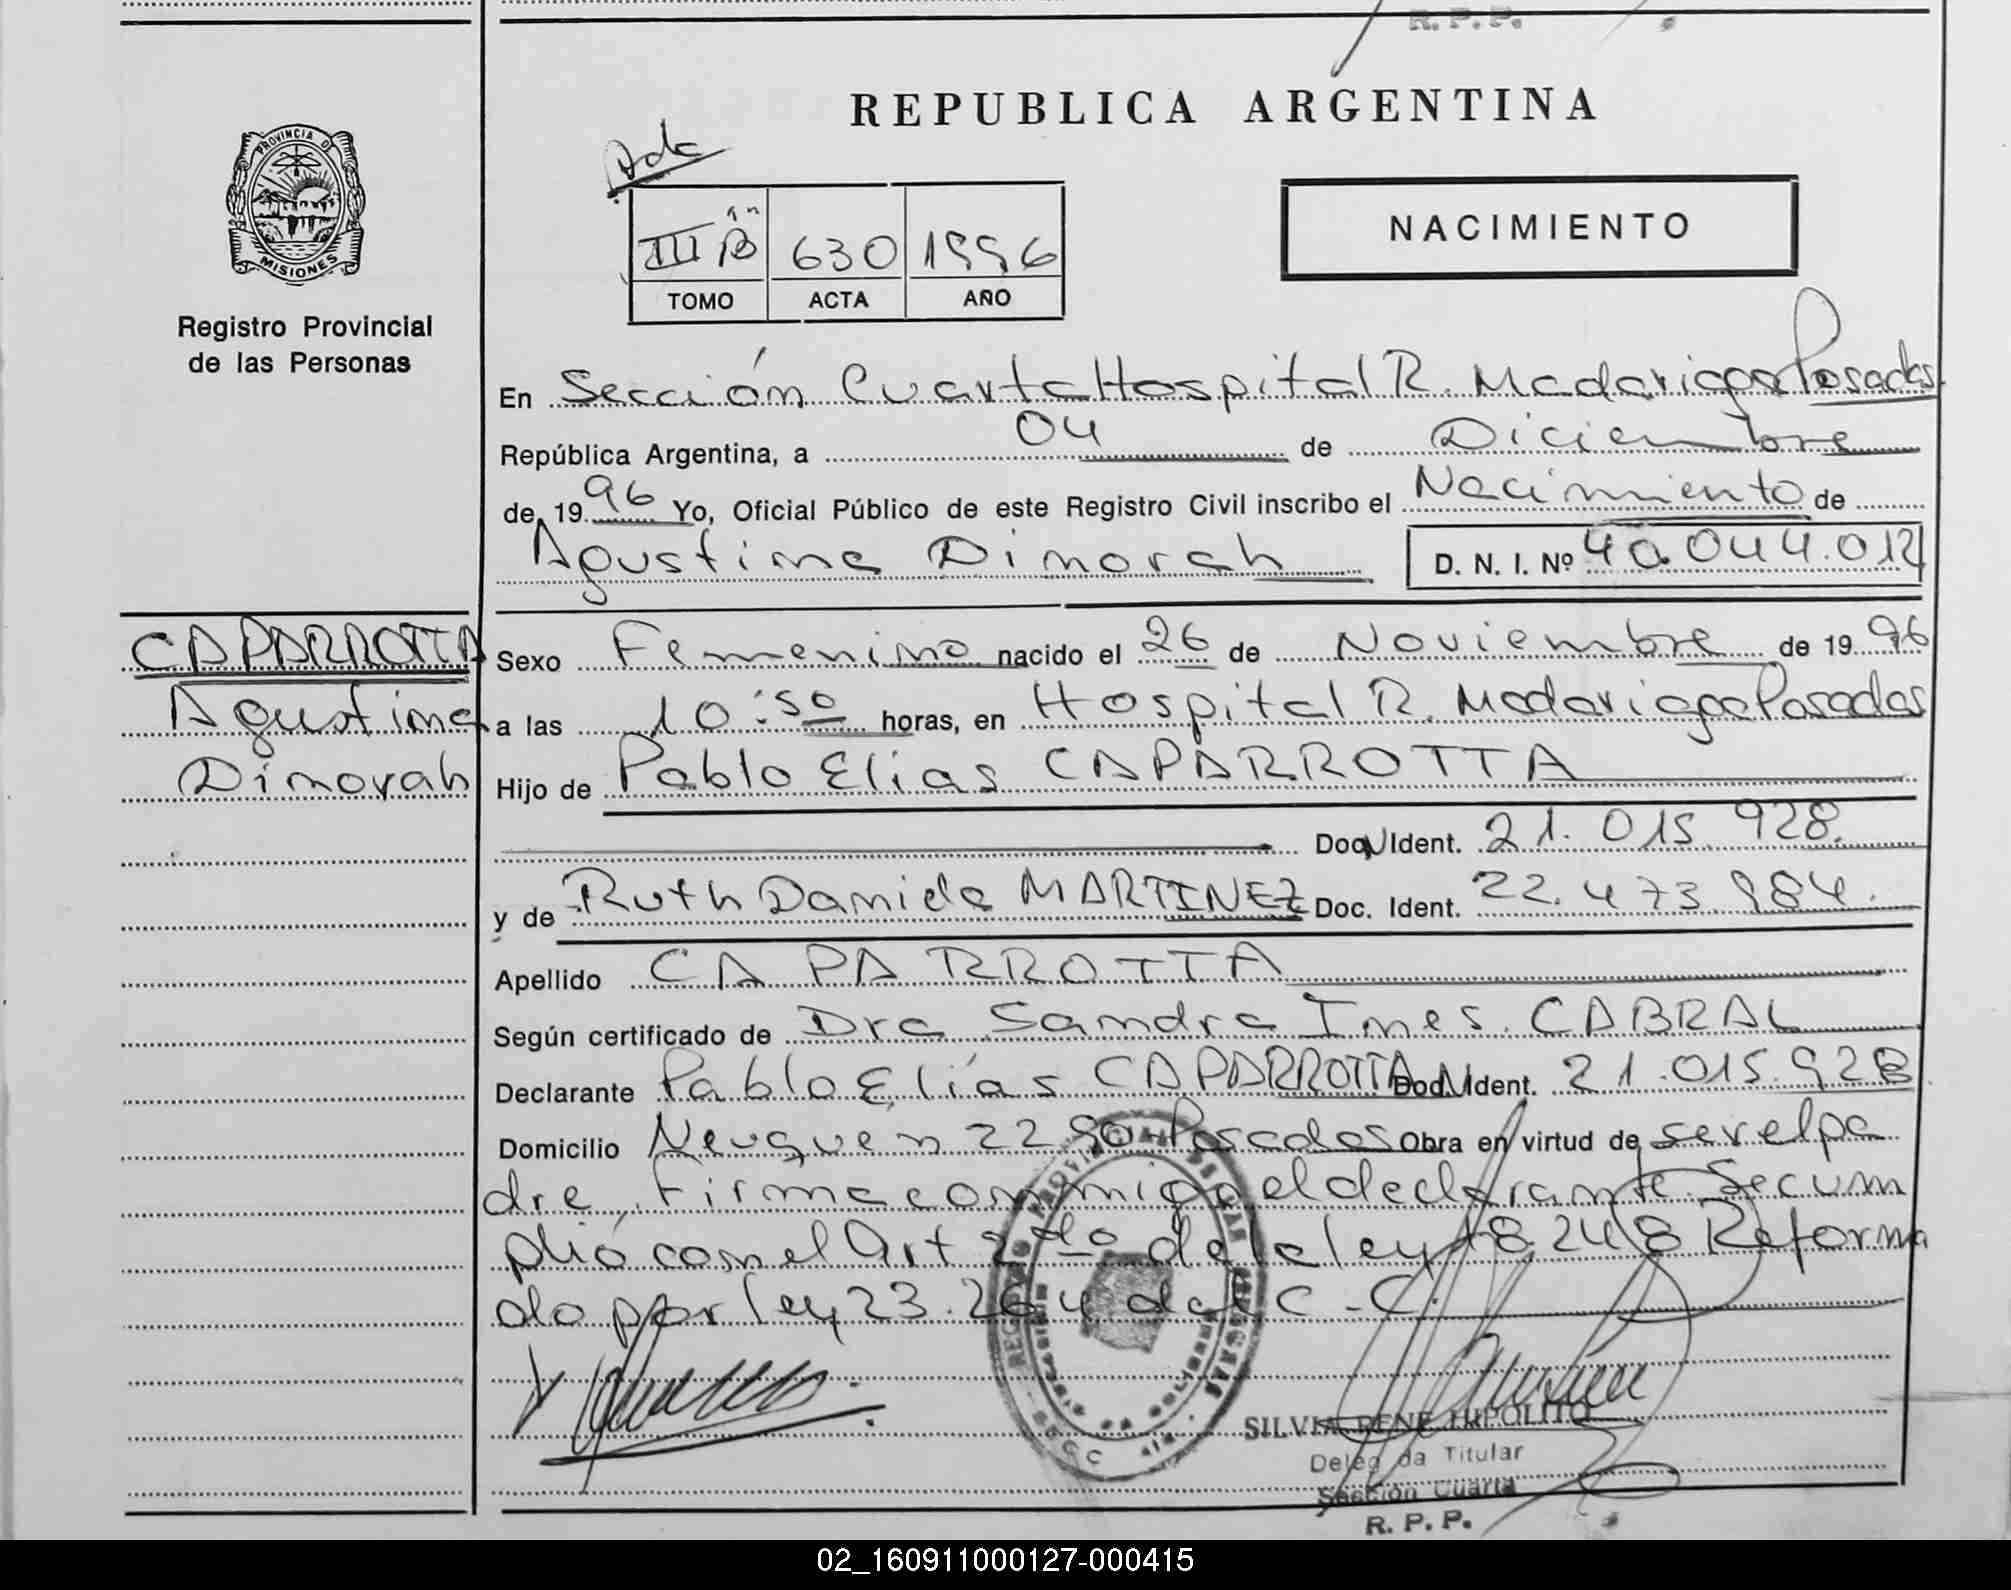 R. P. P.
REPUBLICA ARGENTINA
PROVINCIA DE
MISIONES
Registro Provincial
de las Personas
Ada
III B 630 1996
TOMO ACTA AÑO
NACIMIENTO
En Sección Cuarta Hospital R. Madariaga Posadas
República Argentina, a 04 de Diciembre
de 1996 Yo, Oficial Público de este Registro Civil inscribo el Nacimiento de
Agustina Dinorah D. N. I. Nº 40.044.012
CAPARROTTA
Agustina
Dinorah
Sexo Femenino nacido el 26 de Noviembre de 1996
a las 10:50 horas, en Hospital R. Madariaga Posadas
Hijo de Pablo Elias CAPARROTTA
Doc. Ident. 21.015.928.
y de Ruth Daniela MARTINEZ Doc. Ident. 22.473.984.
Apellido CAPARROTTA
Según certificado de Dra Sandra Ines CABRAL
Declarante Pablo Elías CAPARROTTA Doc. Ident. 21.015.928
Domicilio Neuquen 2290 Posadas Obra en virtud de ser el pa
dre, Firma conmigo el declarante. Se cum
plió con el Art 2do de la ley 18.248 Reforma
do por ley 23.264 del C.C.
SILVIA RENE HIPOLITO
Delegada Titular
Sección Cuarta
R. P. P.
02_160911000127-000415